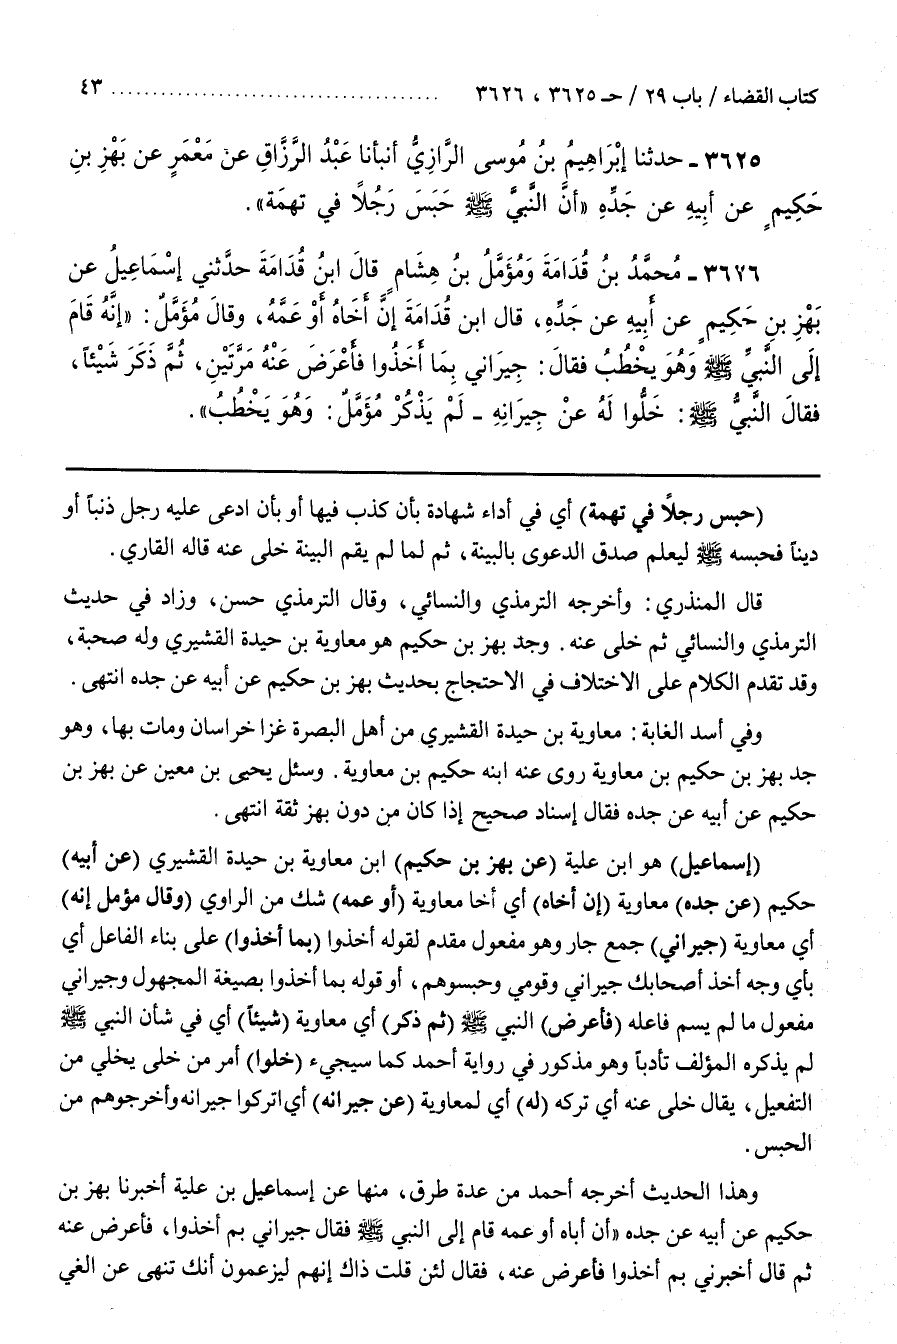 كتاب القضاء / باب ٢٩ / حـ ٣٦٢٥ ، ٣٦٢٦ ........................................ ٤٣
٣٦٢٥ ـ حدثنا إبْرَاهِيمُ بنُ مُوسى الرَّازِيُّ أنبأنا عَبْدُ الرَّزَّاقِ عنْ مَعْمَرٍ عن بَهْزِ بنِ
حَكِيمٍ عن أبِيهِ عن جَدِّهِ «أنَّ النَّبيَّ ﷺ حَبَسَ رَجُلاً في تهمَة».
٣٦٢٦ ـ مُحمَّدُ بنُ قُدَامَةَ وَمُؤَمَّلُ بنُ هِشَامٍ قالَ ابنُ قُدَامَةَ حدَّثني إسْمَاعِيلُ عن
بَهْزِ بنِ حَكِيمٍ عن أَبِيهِ عن جَدِّهِ، قال ابن قُدَامَةَ إنَّ أَخَاهُ أَوْ عَمَّهُ، وقالَ مُؤمَّلٌ: «إنَّهُ قَامَ
إلَى النَّبيِّ ﷺ وَهُوَ يخْطُبُ فقالَ: جِيرَاني بِمَا أَخَذُوا فأَعْرَضَ عَنْهُ مَرَّتَيْنِ، ثُمَّ ذَكَرَ شَيْئاً،
فقالَ النَّبيُّ ﷺ: خَلُّوا لَهُ عنْ جِيرَانِهِ ـ لَمْ يَذْكُرْ مُؤَمَّلٌ: وَهُوَ يَخْطُبُ».
(حبس رجلاً في تهمة) أي في أداء شهادة بأن كذب فيها أو بأن ادعى عليه رجل ذنباً أو
ديناً فحبسه ﷺ ليعلم صدق الدعوى بالبينة، ثم لما لم يقم البينة خلى عنه قاله القاري.
قال المنذري: وأخرجه الترمذي والنسائي، وقال الترمذي حسن، وزاد في حديث
الترمذي والنسائي ثم خلى عنه. وجد بهز بن حكيم هو معاوية بن حيدة القشيري وله صحبة،
وقد تقدم الكلام على الاختلاف في الاحتجاج بحديث بهز بن حكيم عن أبيه عن جده انتهى.
وفي أسد الغابة: معاوية بن حيدة القشيري من أهل البصرة غزا خراسان ومات بها، وهو
جد بهز بن حكيم بن معاوية روى عنه ابنه حكيم بن معاوية. وسئل يحيى بن معين عن بهز بن
حكيم عن أبيه عن جده فقال إسناد صحيح إذا كان من دون بهز ثقة انتهى.
(إسماعيل) هو ابن علية (عن بهز بن حكيم) ابن معاوية بن حيدة القشيري (عن أبيه)
حكيم (عن جده) معاوية (إن أخاه) أي أخا معاوية (أو عمه) شك من الراوي (وقال مؤمل إنه)
أي معاوية (جيراني) جمع جار وهو مفعول مقدم لقوله أخذوا (بما أخذوا) على بناء الفاعل أي
بأي وجه أخذ أصحابك جيراني وقومي وحبسوهم، أو قوله بما أخذوا بصيغة المجهول وجيراني
مفعول ما لم يسم فاعله (فأعرض) النبي ﷺ (ثم ذكر) أي معاوية (شيئاً) أي في شأن النبي ﷺ
لم يذكره المؤلف تأدباً وهو مذكور في رواية أحمد كما سيجيء (خلوا) أمر من خلى يخلي من
التفعيل، يقال خلى عنه أي تركه (له) أي لمعاوية (عن جيرانه) أي اتركوا جيرانه وأخرجوهم من
الحبس.
وهذا الحديث أخرجه أحمد من عدة طرق، منها عن إسماعيل بن علية أخبرنا بهز بن
حكيم عن أبيه عن جده «أن أباه أو عمه قام إلى النبي ﷺ فقال جيراني بم أخذوا، فأعرض عنه
ثم قال أخبرني بم أخذوا فأعرض عنه، فقال لئن قلت ذاك إنهم ليزعمون أنك تنهى عن الغي